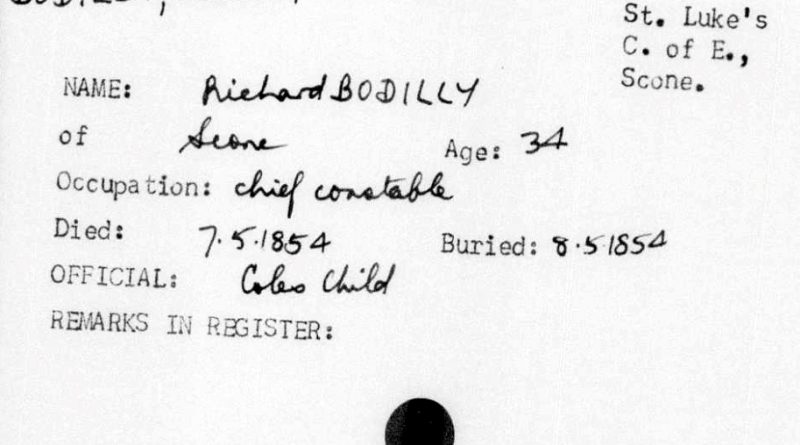 BODILLY,
St. Luke's
C. of E.,
Scone.
NAME: Richard BODILLY
of Scone Age: 34
Occupation: chief constable
Died: 7.5.1854 Buried: 8.5.1854
OFFICIAL: Coles Child
REMARKS IN REGISTER: